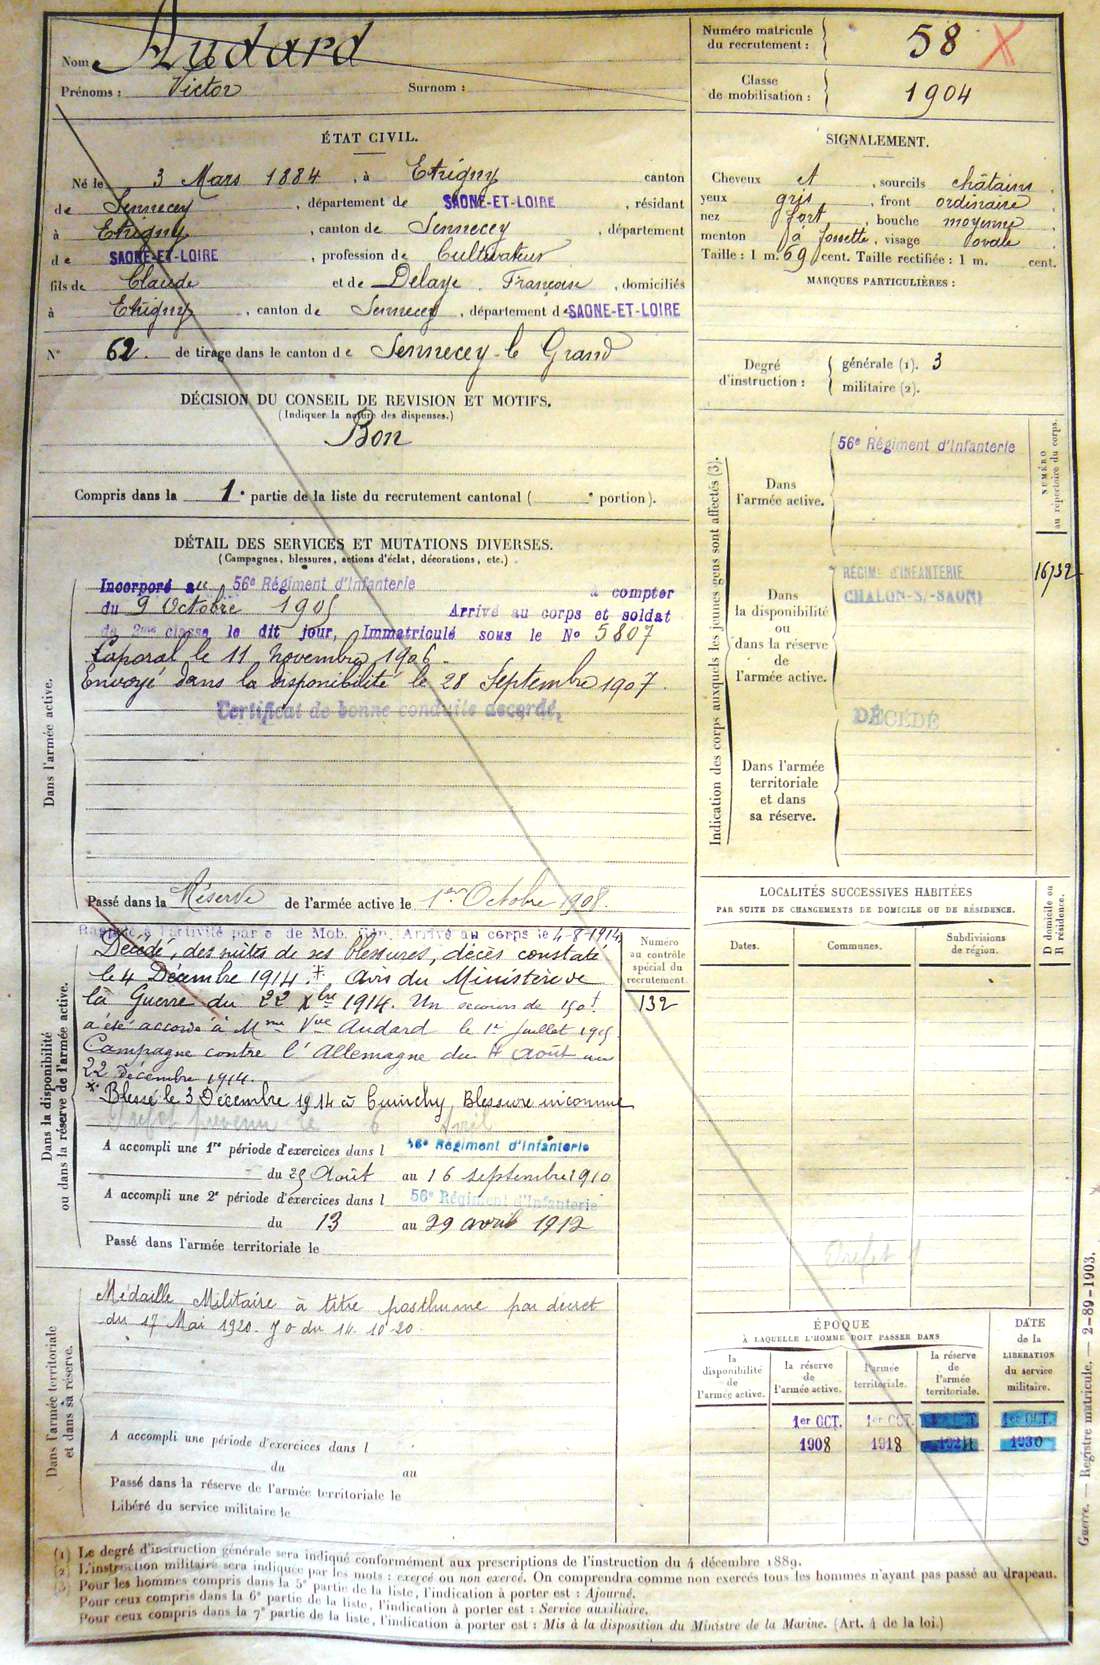 Nom Audard
Prénoms : Victor Surnom :
Numéro matricule du recrutement : 58
Classe de mobilisation : 1904
ÉTAT CIVIL.
Né le 3 Mars 1884, à Etrigny canton
de Sennecey, département de SAONE-ET-LOIRE, résidant
à Etrigny, canton de Sennecey, département
de SAONE-ET-LOIRE, profession de Cultivateur
fils de Claude et de Delaye Françoise, domiciliés
à Etrigny, canton de Sennecey, département de SAONE-ET-LOIRE
N° 62. de tirage dans le canton de Sennecey-le Grand
SIGNALEMENT.
Cheveux et, sourcils châtains,
yeux gris, front ordinaire,
nez fort, bouche moyenne,
menton à fossette, visage ovale
Taille : 1 m. 69 cent. Taille rectifiée : 1 m. cent.
MARQUES PARTICULIÈRES :
Degré d'instruction : générale (1). 3
militaire (2).
DÉCISION DU CONSEIL DE REVISION ET MOTIFS.
(Indiquer la nature des dispenses.)
Bon
Compris dans la 1e partie de la liste du recrutement cantonal ( e portion).
DÉTAIL DES SERVICES ET MUTATIONS DIVERSES.
(Campagnes, blessures, actions d'éclat, décorations, etc.)
Dans l'armée active.
Incorporé au 56e Régiment d'Infanterie à compter
du 9 Octobre 1905 Arrivé au corps et soldat
de 2me classe le dit jour, Immatriculé sous le No 5807
Caporal le 11 Novembre 1906.
Envoyé dans la disponibilité le 28 Septembre 1907.
Certificat de bonne conduite accordé,
Passé dans la Réserve de l'armée active le 1er Octobre 1908.
Indication des corps auxquels les jeunes gens sont affectés (3).
NUMÉRO au répertoire du corps.
Dans l'armée active.
56e Régiment d'Infanterie
Dans la disponibilité ou dans la réserve de l'armée active.
RÉGIMt D'INFANTERIE
CHALON-S/-SAONE
16732
Dans l'armée territoriale et dans sa réserve.
DÉCÉDÉ
Dans la disponibilité ou dans la réserve de l'armée active.
Rappelé à l'activité par de Mob. Gén. Arrivé au corps le 4-8-1914
Décédé, des suites de ses blessures, décès constaté
le 4 Décembre 1914. + avis du Ministère de
la Guerre du 22 Xbre 1914. Un secours de 150f
a été accordé à Mme Vve Audard le 1er Juillet 1915
Campagne contre l'Allemagne du 4 Août au
22 décembre 1914.
x Blessé le 3 Décembre 1914 à Cuinchy, Blessure inconnue
Préfet prévenu le 6 Avril
A accompli une 1re période d'exercices dans l 56e Régiment d'Infanterie
du 25 Août au 16 septembre 1910
A accompli une 2e période d'exercices dans l 56e Régiment d'Infanterie
du 13 au 29 avril 1912
Passé dans l'armée territoriale le
Numéro au contrôle spécial du recrutement
132
LOCALITÉS SUCCESSIVES HABITÉES
PAR SUITE DE CHANGEMENTS DE DOMICILE OU DE RÉSIDENCE.
Dates. Communes. Subdivisions de région. D domicile ou R résidence.
Préfet
Dans l'armée territoriale et dans sa réserve.
Médaille Militaire à titre posthume par décret
du 17 Mai 1920. JO du 14.10.20.
A accompli une période d'exercices dans l
du au
Passé dans la réserve de l'armée territoriale le
Libéré du service militaire le
ÉPOQUE
À LAQUELLE L'HOMME DOIT PASSER DANS
DATE de la LIBÉRATION du service militaire.
la disponibilité de l'armée active. la réserve de l'armée active. l'armée territoriale. la réserve de l'armée territoriale.
1er OCT. 1er OCT. 1er OCT. 1er OCT.
1908 1918 1924 1930
Guerre. — Registre matricule. — 2-89-1903.
(1) Le degré d'instruction générale sera indiqué conformément aux prescriptions de l'instruction du 4 décembre 1889.
(2) L'instruction militaire sera indiquée par les mots : exercé ou non exercé. On comprendra comme non exercés tous les hommes n'ayant pas passé au drapeau.
(3) Pour les hommes compris dans la 5e partie de la liste, l'indication à porter est : Ajourné.
Pour ceux compris dans la 6e partie de la liste, l'indication à porter est : Service auxiliaire.
Pour ceux compris dans la 7e partie de la liste, l'indication à porter est : Mis à la disposition du Ministre de la Marine. (Art. 4 de la loi.)